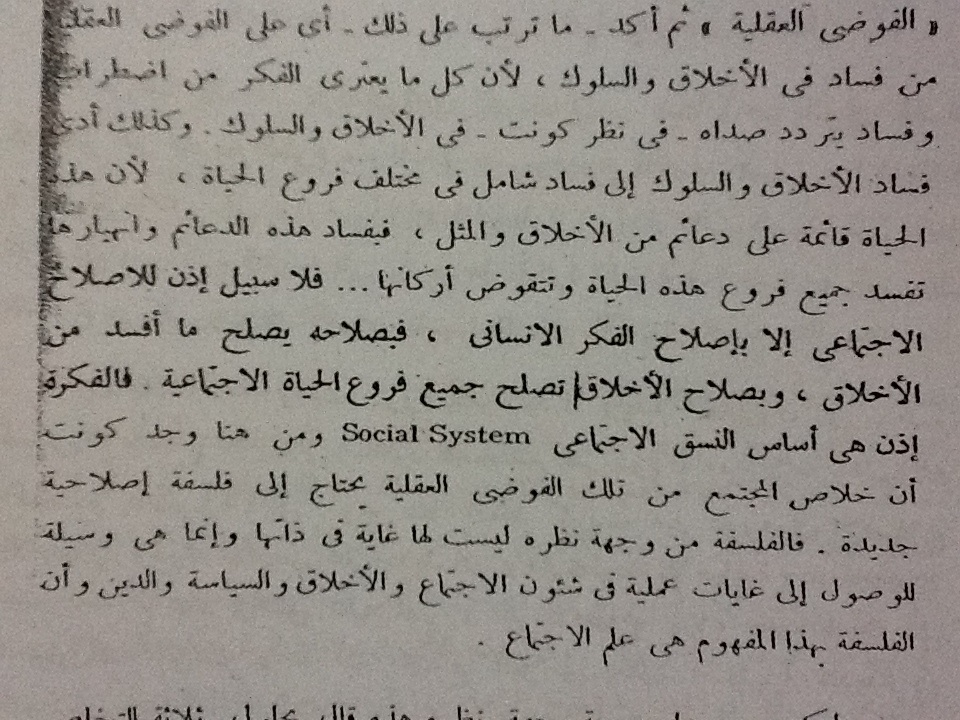 « الفوضى العقلية » ثم أكد ـ ما ترتب على ذلك ـ أى على الفوضى العقلية
من فساد فى الأخلاق والسلوك ، لأن كل ما يعترى الفكر من اضطراب
وفساد يتردد صداه ـ فى نظر كونت ـ فى الأخلاق والسلوك . وكذلك أدى
فساد الأخلاق والسلوك إلى فساد شامل فى مختلف فروع الحياة ، لأن هذه
الحياة قائمة على دعائم من الأخلاق والمثل ، فبفساد هذه الدعائم وانهيارها
تفسد جميع فروع هذه الحياة وتتقوض أركانها ... فلا سبيل إذن للاصلاح
الاجتماعى إلا بإصلاح الفكر الانسانى ، فبصلاحه يصلح ما أفسد من
الأخلاق ، وبصلاح الأخلاق تصلح جميع فروع الحياة الاجتماعية . فالفكرة
إذن هى أساس النسق الاجتماعى Social System ومن هنا وجد كونت
أن خلاص المجتمع من تلك الفوضى العقلية يحتاج إلى فلسفة إصلاحية
جديدة . فالفلسفة من وجهة نظره ليست لها غاية فى ذاتها وإنما هى وسيلة
للوصول إلى غايات عملية فى شئون الاجتماع والأخلاق والسياسة والدين وأن
الفلسفة بهذا المفهوم هى علم الاجتماع .